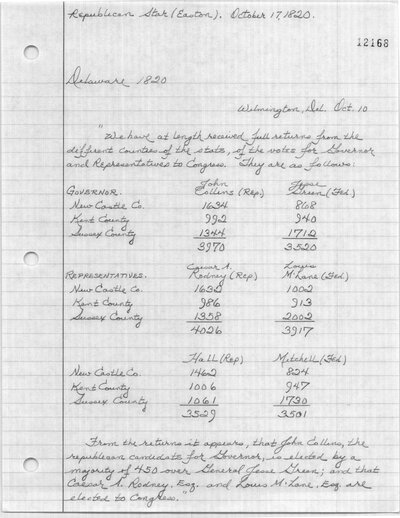 Republican Star (Easton). October 17, 1820.
12168
Delaware 1820
Wilmington, Del. Oct. 10
"We have at length received full returns from the
different counties of the state, of the votes for Governor
and Representatives to Congress. They are as follows:
GOVERNOR. John Collins (Rep.) Jesse Green (Fed.)
New Castle Co. 1634 868
Kent County 992 940
Sussex County 1344 1712
3970 3520
REPRESENTATIVES. Caesar A. Rodney (Rep) Louis M'Lane (Fed.)
New Castle Co. 1632 1002
Kent County 986 913
Sussex County 1358 2002
4026 3917
Hall (Rep) Mitchell (Fed.)
New Castle Co. 1462 824
Kent County 1006 947
Sussex County 1061 1730
3529 3501
From the returns it appears, that John Collins, the
republican candidate for Governor, is elected by a
majority of 450 over General Jesse Green; and that
Caesar A. Rodney, Esq. and Louis M'Lane, Esq. are
elected to Congress."